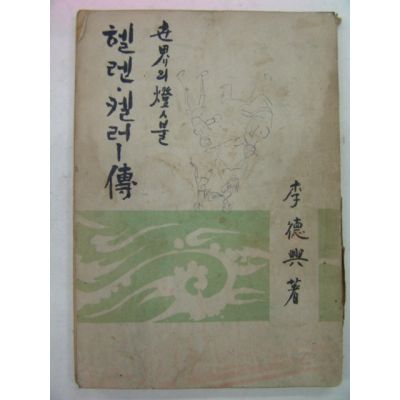 世界의 燈ㅅ불
헬렌·켈러ー傳
李德興著